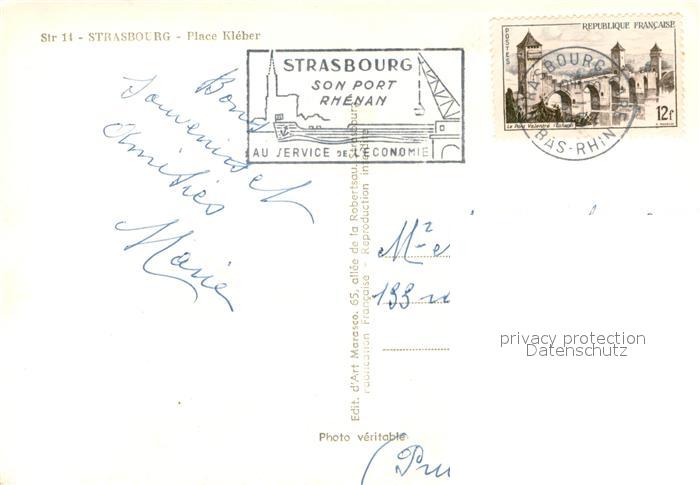 Str 14 - STRASBOURG - Place Kléber
STRASBOURG
SON PORT
RHÉNAN
AU SERVICE DE L'ÉCONOMIE
POSTES
REPUBLIQUE FRANÇAISE
12f
Le Pont Valentré
BAS-RHIN
Bons
Souvenirs et
Amitiés
Marie
Edit. d'Art Marasco. 65, allée de la Robertsau. Strasbourg
Fabrication Française - Reproduction interdite
133
privacy protection
Datenschutz
Photo véritable